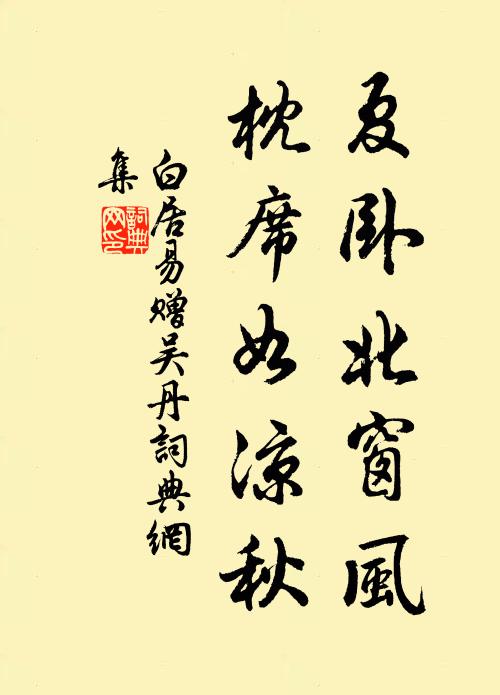 夏卧北窗風
枕席如涼秋
白居易贈吴丹詞典網
集
詞典
网印